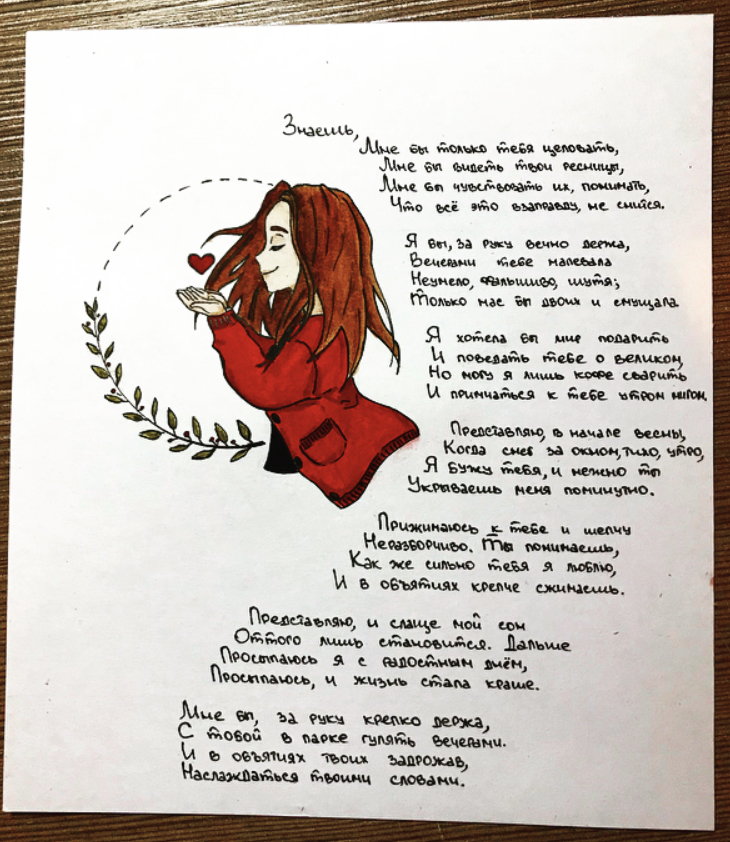 Знаешь,
Мне бы только тебя целовать,
Мне бы видеть твои ресницы,
Мне бы чувствовать их, понимать,
Что всё это взаправду, не снится.
Я бы, за руку вечно держа,
Вечерами тебе напевала
Неумело, фальшиво, шутя;
Только нас бы двоих и смущала
Я хотела бы мир подарить
И поведать тебе о великом,
Но могу я лишь кофе сварить
И примчаться к тебе утром мигом.
Представляю, в начале весны,
Когда снег за окном, тихо, утро,
Я бужу тебя, и нежно ты
Укрываешь меня поминутно.
Прижимаюсь к тебе и шепчу
Неразборчиво. Ты понимаешь,
Как же сильно тебя я люблю,
И в объятиях крепче сжимаешь.
Представляю, и слаще мой сон
Оттого лишь становится. Дальше
Просыпаюсь я с радостным днём,
Просыпаюсь, и жизнь стала краше.
Мне бы, за руку крепко держа,
С тобой в парке гулять вечерами.
И в объятиях твоих задрожав,
Наслаждаться твоими словами.